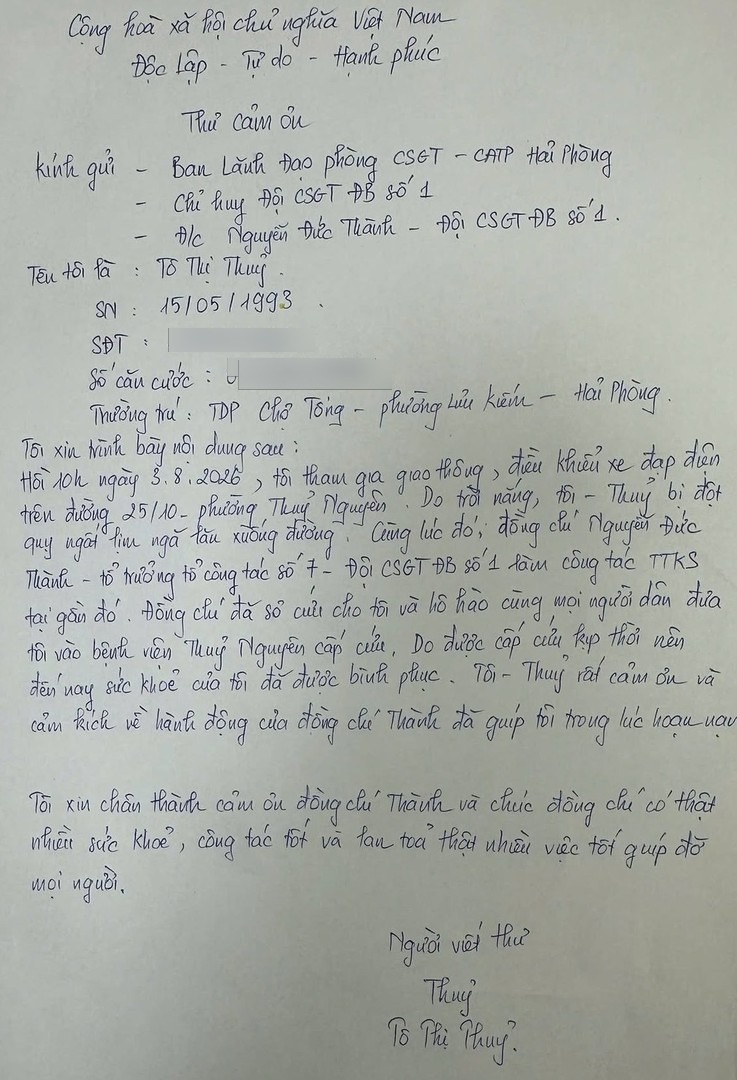 Cộng hoà xã hội chủ nghĩa Việt Nam
Độc Lập - Tự do - Hạnh phúc
Thư cảm ơn
Kính gửi - Ban Lãnh Đạo phòng CSGT - CATP Hải Phòng
- Chỉ huy Đội CSGT ĐB số 1
- Đ/c Nguyễn Đức Thành - Đội CSGT ĐB số 1.
Tên tôi là : Tô Thị Thuỷ.
SN : 15/05/1993.
SĐT :
Số căn cước :
Thường trú : TDP Chợ Tổng - phường Lưu Kiếm - Hải Phòng.
Tôi xin trình bày nội dung sau :
Hồi 10h ngày 3.8.2026, tôi tham gia giao thông, điều khiển xe đạp điện
trên đường 25/10 - phường Thuỷ Nguyên. Do trời nắng, tôi - Thuỷ bị đột
quỵ ngất lịm ngã lăn xuống đường. Cùng lúc đó, đồng chí Nguyễn Đức
Thành - tổ trưởng tổ công tác số 7 - Đội CSGT ĐB số 1 làm công tác TTKS
tại gần đó. Đồng chí đã sơ cứu cho tôi và hô hào cùng mọi người dân đưa
tôi vào bệnh viện Thuỷ Nguyên cấp cứu. Do được cấp cứu kịp thời nên
đến nay sức khoẻ của tôi đã được bình phục. Tôi - Thuỷ rất cảm ơn và
cảm kích về hành động của đồng chí Thành đã giúp tôi trong lúc hoạn nạn
Tôi xin chân thành cảm ơn đồng chí Thành và chúc đồng chí có thật
nhiều sức khoẻ, công tác tốt và lan toả thật nhiều việc tốt giúp đỡ
mọi người.
Người viết thư
Thuỷ
Tô Thị Thuỷ.